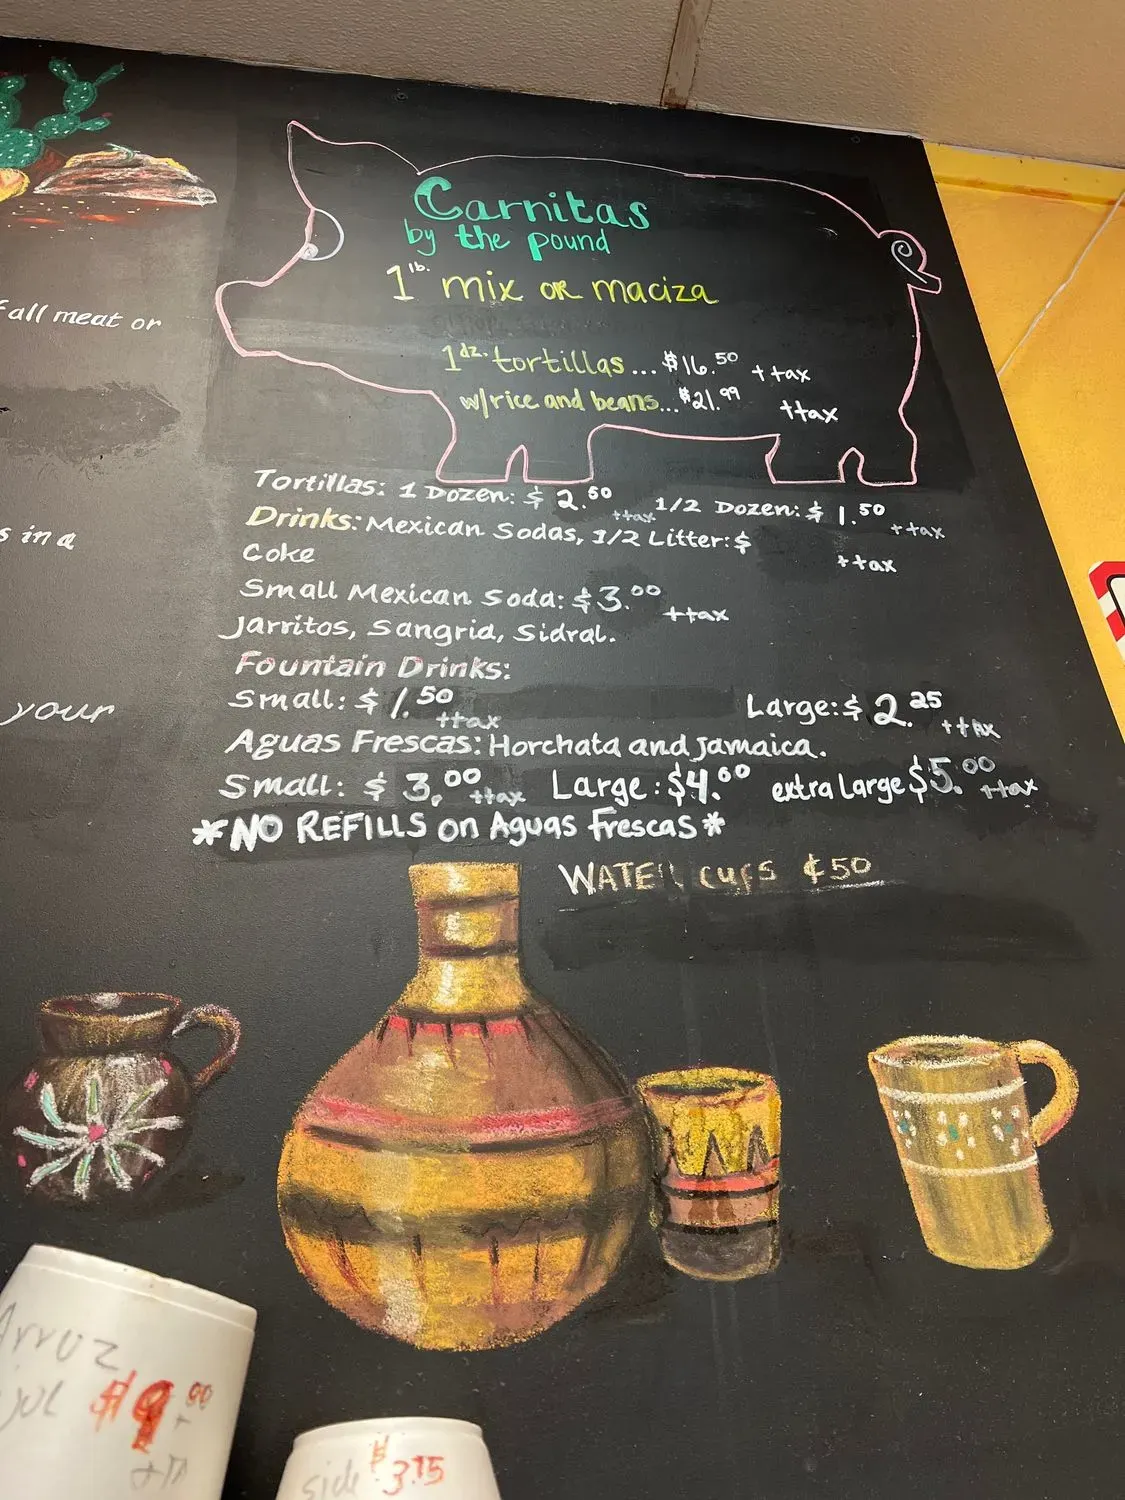 Carnitas
by the pound
1 lb. mix or maciza
1 dz. tortillas... $16.50 + tax
w/rice and beans... $21.99 + tax
Tortillas: 1 Dozen: $2.50 + tax 1/2 Dozen: $1.50 + tax
Drinks: Mexican Sodas, 1/2 Litter: $ + tax
Coke
Small Mexican Soda: $3.00 + tax
Jarritos, Sangria, Sidral.
Fountain Drinks:
Small: $1.50 + tax Large: $2.25 + tax
Aguas Frescas: Horchata and Jamaica.
Small: $3.00 + tax Large: $4.00 extra Large $5.00 + tax
*NO REFILLS on Aguas Frescas*
WATER cups ¢50
all meat or
s in a
your
Arroz
$9.00
side $3.75